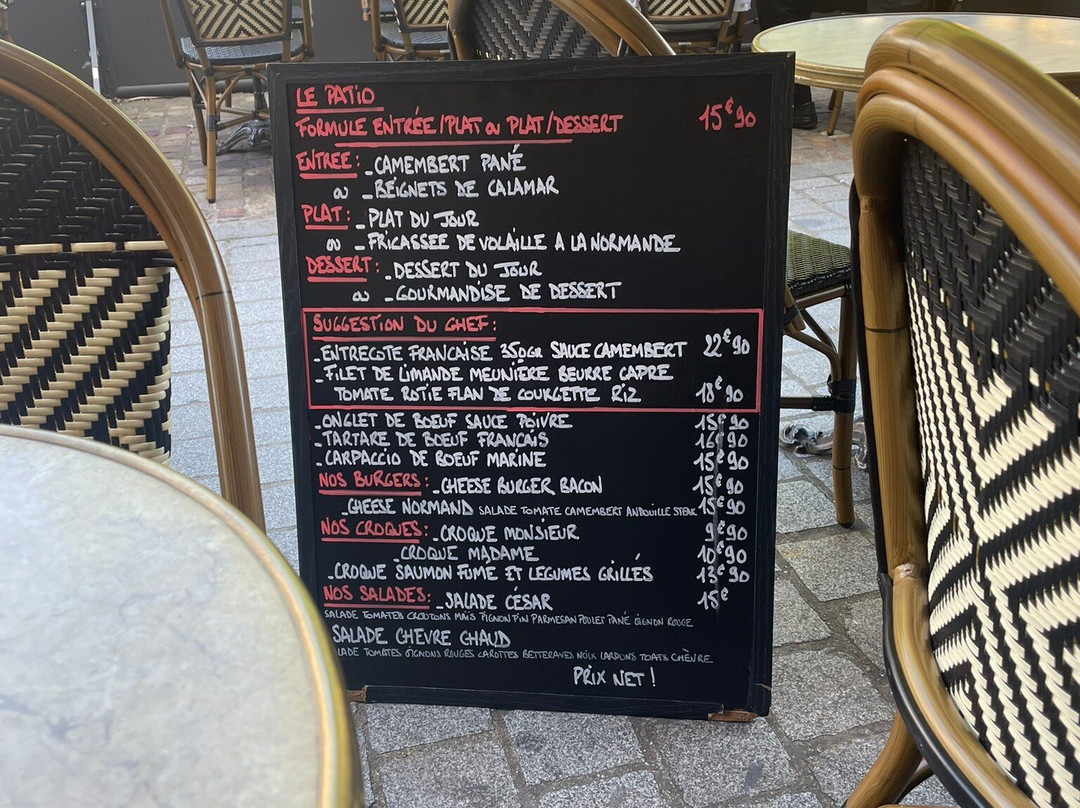 LE PATIO
FORMULE ENTRÉE/PLAT ou PLAT/DESSERT 15€90
ENTREE: - CAMEMBERT PANÉ
ou - BEIGNETS DE CALAMAR
PLAT: - PLAT DU JOUR
ou - FRICASSEE DE VOLAILLE A LA NORMANDE
DESSERT: - DESSERT DU JOUR
ou - GOURMANDISE DE DESSERT
SUGGESTION DU CHEF:
- ENTRECOTE FRANCAISE 350GR SAUCE CAMEMBERT 22€90
- FILET DE LIMANDE MEUNIÈRE BEURRE CAPRE
TOMATE ROTIE FLAN DE COURGETTE RIZ 18€90
- ONGLET DE BOEUF SAUCE POIVRE 15€90
- TARTARE DE BOEUF FRANCAIS 16€90
- CARPACCIO DE BOEUF MARINE 15€90
NOS BURGERS: - CHEESE BURGER BACON 15€90
- CHEESE NORMAND SALADE TOMATE CAMEMBERT ANDOUILLE STEAK 15€90
NOS CROQUES: - CROQUE MONSIEUR 9€90
- CROQUE MADAME 10€90
- CROQUE SAUMON FUMÉ ET LEGUMES GRILLÉS 13€90
NOS SALADES: - SALADE CÉSAR 15€
SALADE TOMATES CROUTONS MAÏS PIGNON PIN PARMESAN POULET PANÉ OIGNON ROUGE
SALADE CHEVRE CHAUD
LADE TOMATES OIGNONS ROUGES CAROTTES BETTERAVES NOIX LARDONS TOATS CHÈVRE
PRIX NET !